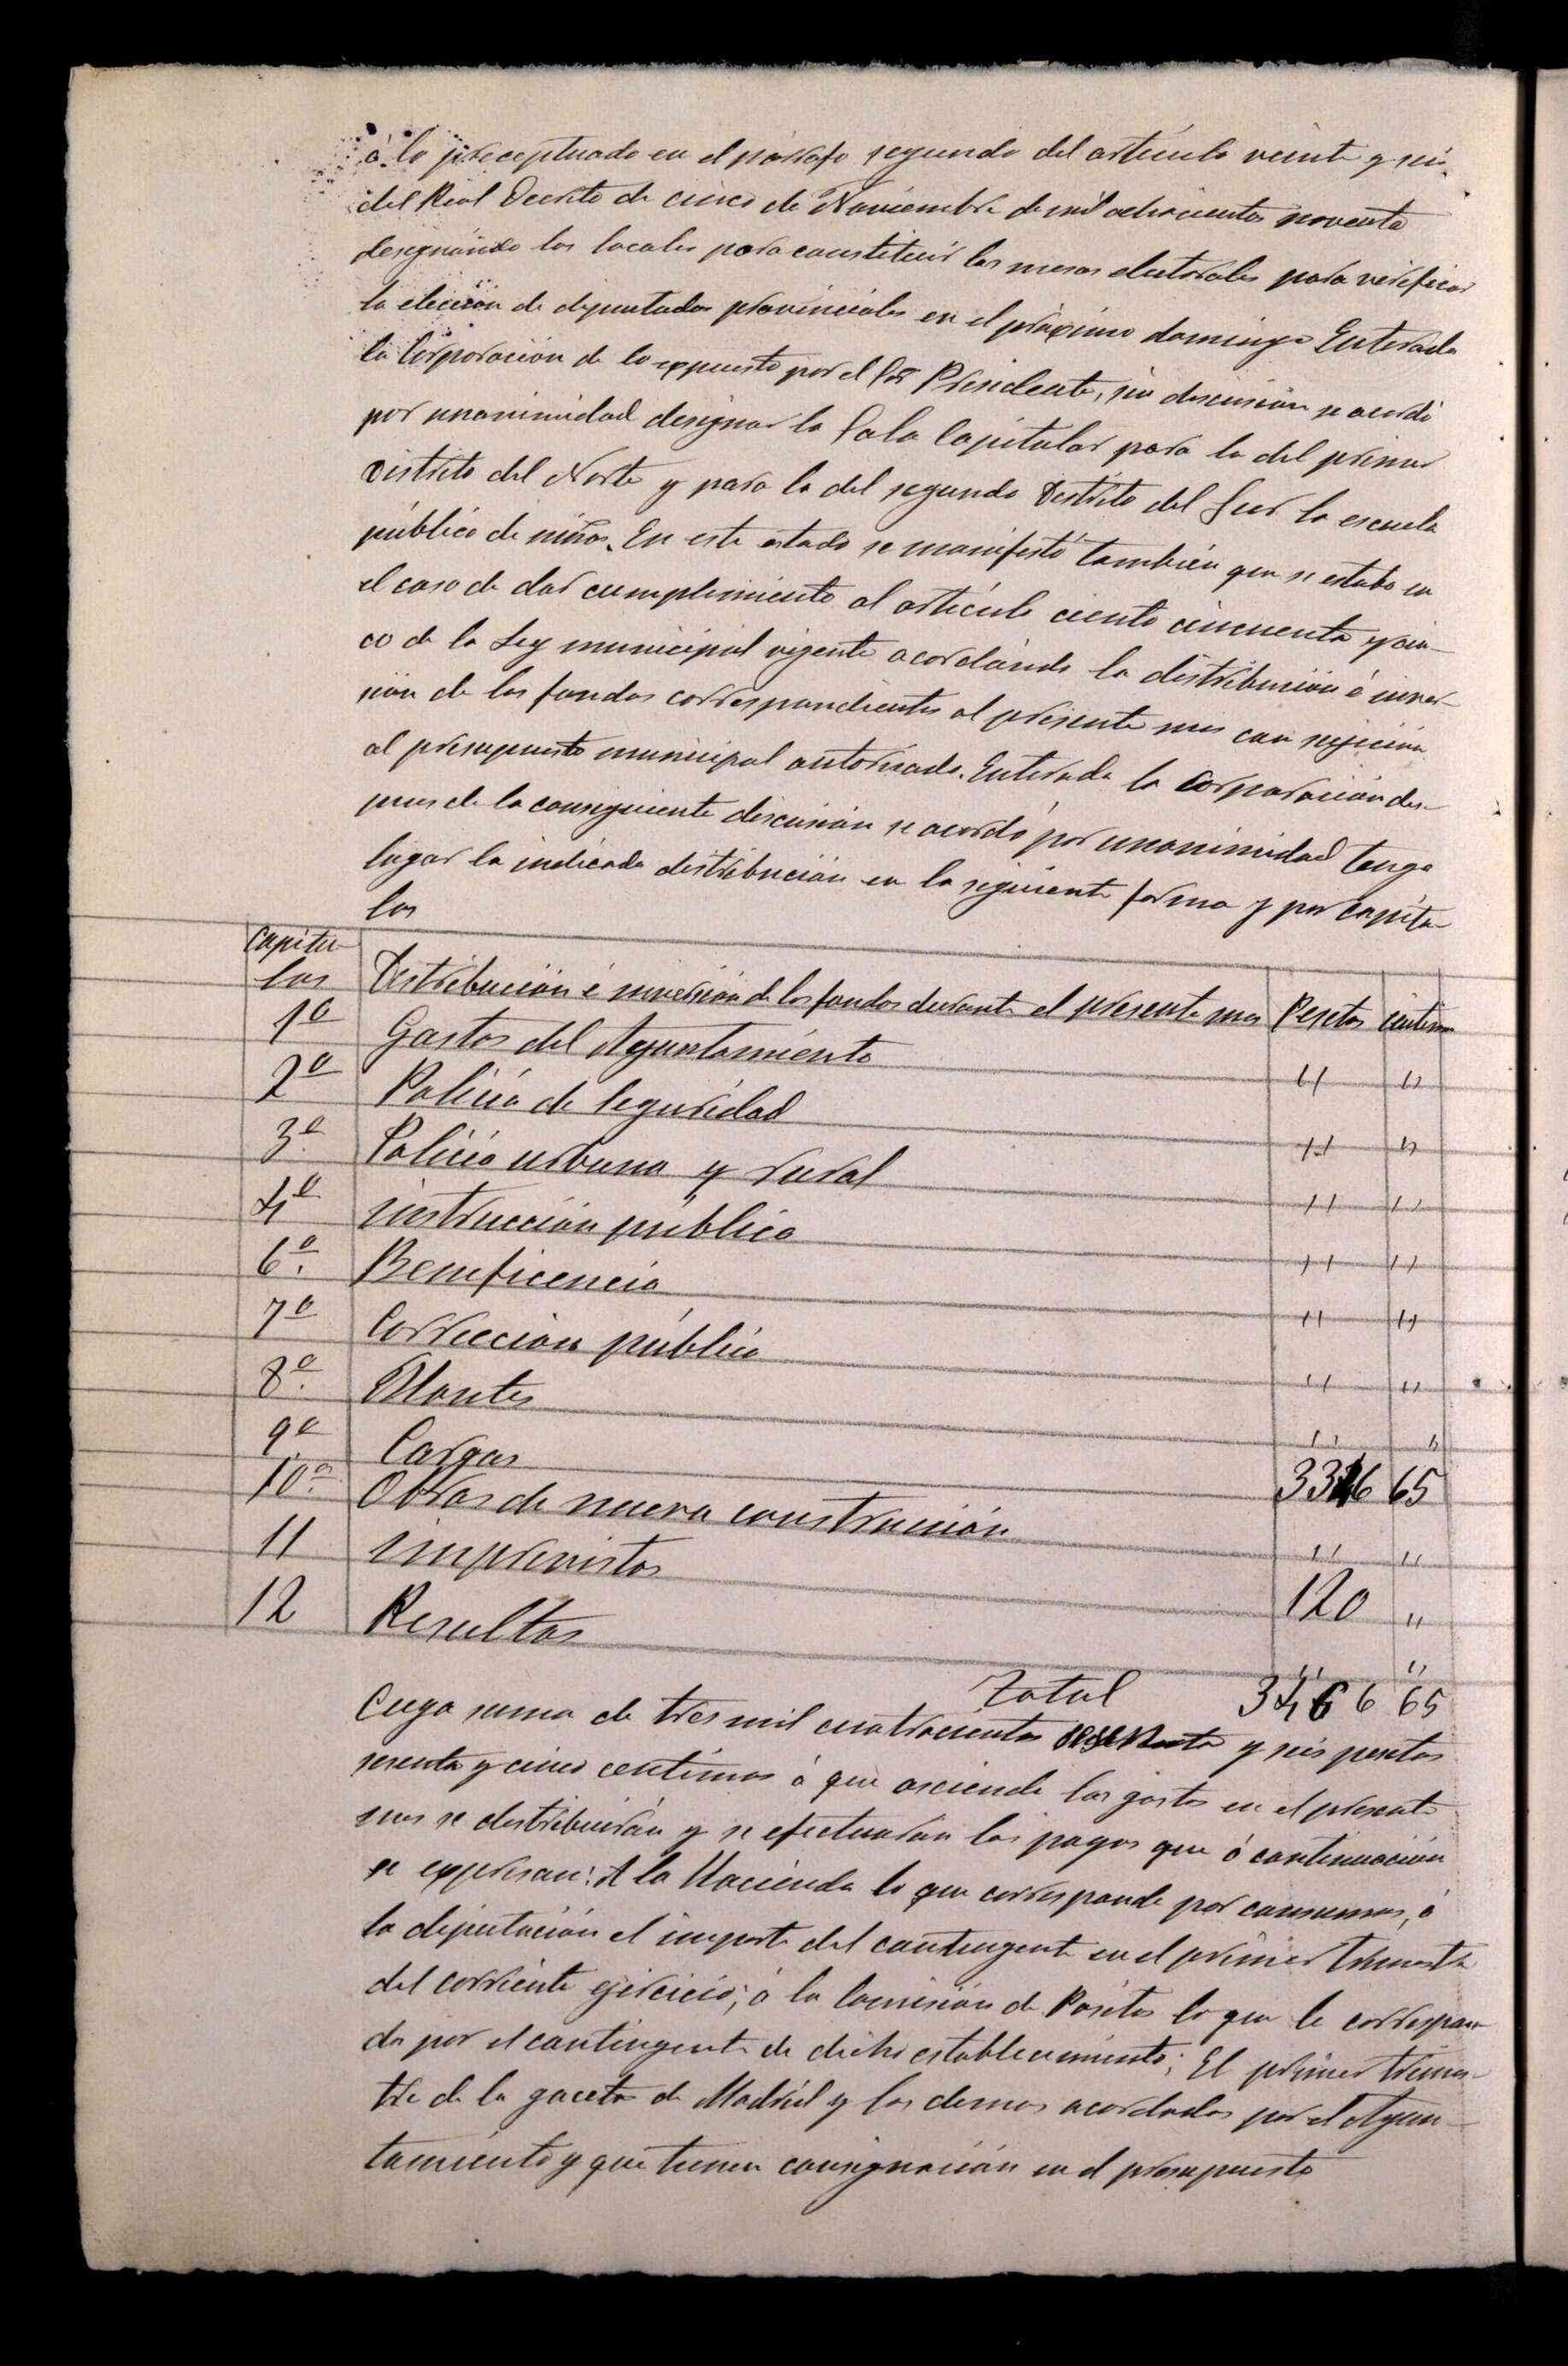 á lo preceptuado en el párrafo segundo del artículo veinte y seis
del Real Decreto de cinco de Noviembre de mil ochocientos noventa
designando los locales para constituir las mesas electorales para verificar
la elección de diputados provinciales en el próximo domingo Enterada
la Corporación de lo expuesto por el Sor Presidente, sin discusión se acordó
por unanimidad designar la Sala Capitular para la del primer
Distrito del Norte y para la del segundo Distrito del Sur la escuela
pública de niños. En este estado se manifestó también que se estaba en
el caso de dar cumplimiento al artículo ciento cincuenta y cin-
co de la Ley municipal vigente acordándo la distribución é inver-
sión de los fondos correspondientes al presente mes con sujeción
al presupuesto municipal autorizado. Enterada la Corporación des-
pues de la consiguiente discusión se acordó por unanimidad tenga
lugar la indicada distribución en la siguiente forma y por Capítu-
los
Capítu-
los Distribución é inversión de los fondos durante el presente mes Pesetas céntimos
1º Gastos del Ayuntamiento " "
2º Policía de Seguridad " "
3º Policía urbana y rural " "
4º instrucción pública " "
6º Beneficencia " "
7º Corrección pública " "
8º Montes " "
9º Cargas 3346 65
10º Obras de nueva construcción " "
11 imprevistos 120 "
12 Resultas " "
Total 3466 65
Cuya suma de tres mil cuatrocientas sesenta y seis pesetas
sesenta y cinco centimos á que asciende los gastos en el presente
mes se distribuirán y se efectuaran los pagos que á continuación
se expresan: A la Hacienda lo que corresponde por consumos, á
la diputación el importe del contingente en el primer trimestre
del corriente ejercicio; á la Comisión de Pósitos lo que le correspon-
da por el contingente de dicho establecimiento; El primer trimes-
tre de la gaceta de Madrid y los demas acordados por el Ayun-
tamiento y que tienen consignación en el presupuesto